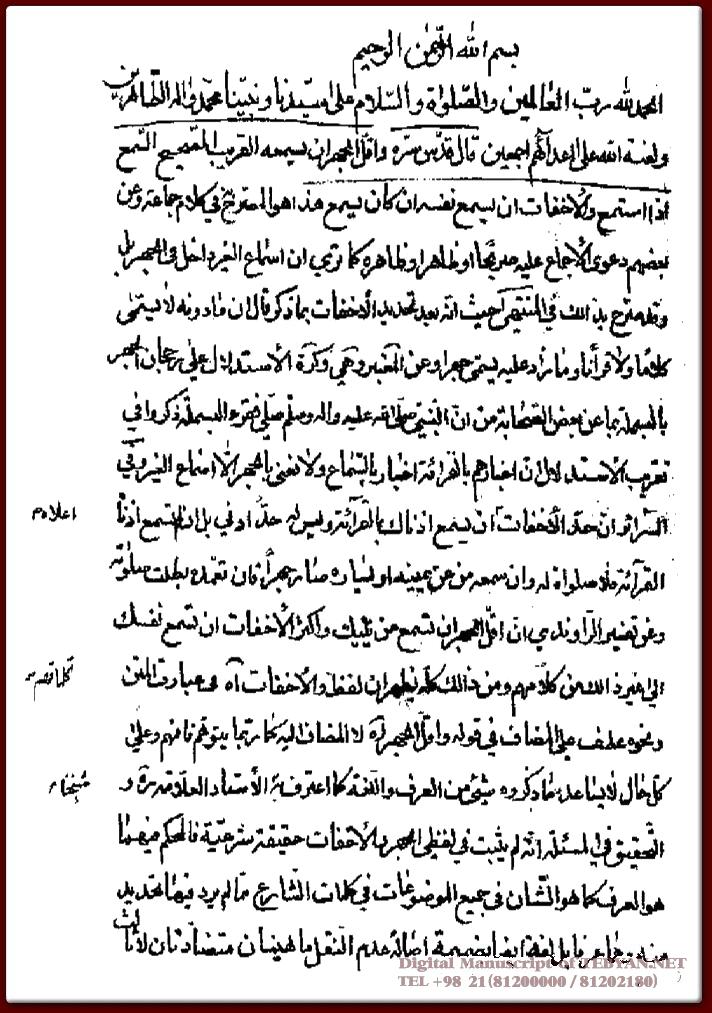 بسم الله الرحمن الرحيم
الحمد لله رب العالمين والصلواة والسلام على سيدنا ونبينا محمد واله الطاهرين
ولعنة الله على اعدائهم اجمعين قال قدس سره واقل الجهر ان يسمعه القريب الصحيح السمع
اذا استمع والاخفات ان يسمع نفسه ان كان يسمع هذا هو المصرح في كلام جماعة وعن
بعضهم دعوى الاجماع عليه صريحا او ظاهرا وظاهره كما ترى ان اسماع الغير داخل في الجهر بل
وقد صرح بذالك في المنتهى حيث انه بعد تحديد الاخفات بما ذكر قال ان ما دونه لا يسمى
كلاما ولا قرآنا وما زاد عليه يسمى جهرا وعن المعتبر وكرة الاستدلال على رجحان الجهر
بالبسملة بما عن بعض الصحابة من ان النبي صلى الله عليه واله وسلم صلى فقرء البسملة ذكروا في
تقريب الاستدلال ان اخبارهم بالقرائة اخبار بالسماع ولا نعني بالجهر الا اسماع الغير وفي
السرائر ان حد الاخفات ان يسمع اذناك بالقرائة وليس له حد ادنى بل ان لم تسمع اذناه
القرائة فلا صلواة له وان سمعه من عن يمينه او يساره صار جهرا فان تعمده بطلت صلوته
وعن تفسير الراوندي ان اقل الجهر ان تسمع من يليك واكثر الاخفات ان تسمع نفسك
الى غير ذالك من كلامهم ومن ذالك كله يظهر ان لفظ والاخفات آه في عبارت المتن
ونحوه عطف على المضاف في قوله واقل الجهر آه لا المضاف اليه كما ربما يتوهم فافهم وعلى
كل حال لا يساعد ما ذكروه شيئ من العرف واللغة كما اعترف به الاستاد العلامة ره و
التحقيق في المسئلة انه لم يثبت في لفظي الجهر والاخفات حقيقة شرعية فالمحكم فيهما
هو العرف كما هو الشان في جميع الموضوعات في كلمات الشارع ما لم يرد فيها تحديد
منه بل لغة ايضا بضميمة اصالة عدم النقل متضادتان لا ثالث
اعلام
شيخنا
Digital Manuscript of TEBYAN.NET
TEL +98 21(81200000 / 81202180)